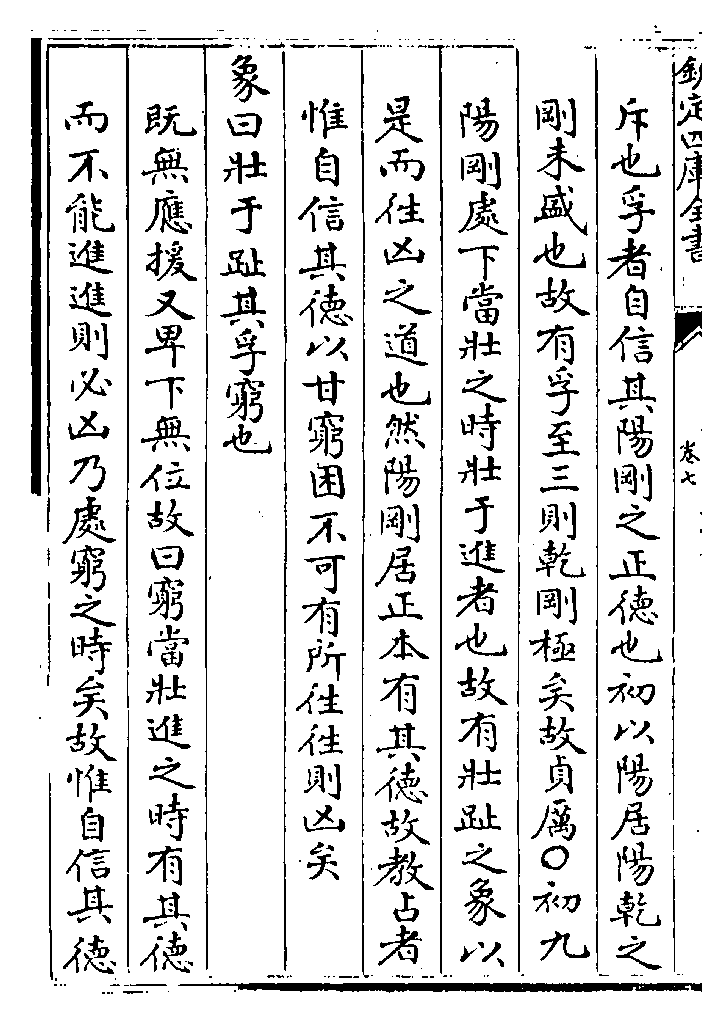 欽定四庫全書
卷七
斥也孚者自信其陽剛之正德也初以陽居陽乾之
剛未盛也故有孚至三則乾剛極矣故貞厲〇初九
陽剛處下當壯之時壯于進者也故有壯趾之象以
是而往凶之道也然陽剛居正本有其德故教占者
惟自信其德以甘窮困不可有所往往則凶矣
象曰壯于趾其孚窮也
既無應援又卑下無位故曰窮當壯進之時有其德
而不能進進則必凶乃處窮之時矣故惟自信其德